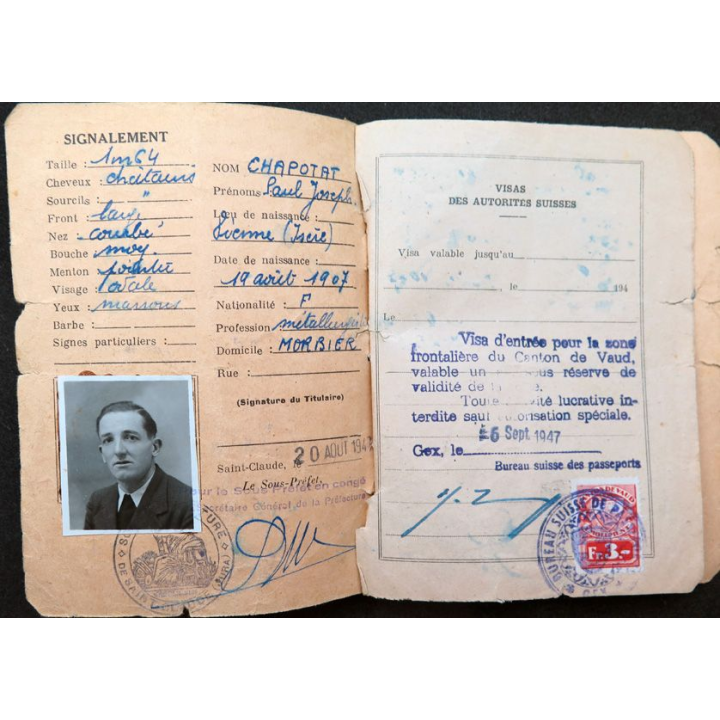 SIGNALEMENT
Taille : 1m64
Cheveux : châtains
Sourcils : "
Front : large
Nez : courbé
Bouche : moy
Menton :
Visage : ovale
Yeux : marrons
Barbe :
Signes particuliers :
NOM CHAPOTAT
Prénoms Paul Joseph
Lieu de naissance :
Vienne (Isère)
Date de naissance :
19 août 1907
Nationalité : F
Profession
Domicile : MORBIER
Rue :
(Signature du Titulaire)
20 AOUT 194
Saint-Claude, le
Le Sous-Préfet,
our le Sous-Préfet en congé
Secrétaire Général de la Préfecture
VISAS
DES AUTORITÉS SUISSES
Visa valable jusqu'au
, le 194
Le
Visa d'entrée pour la zone
frontalière du Canton de Vaud,
valable un sous réserve de
validité de la
Toute lucrative in-
terdite sauf autorisation spéciale.
Sept 1947
Gex, le
Bureau suisse des passeports
BUREAU SUISSE DE
GEX
DE VAUD
Fr. 3.-